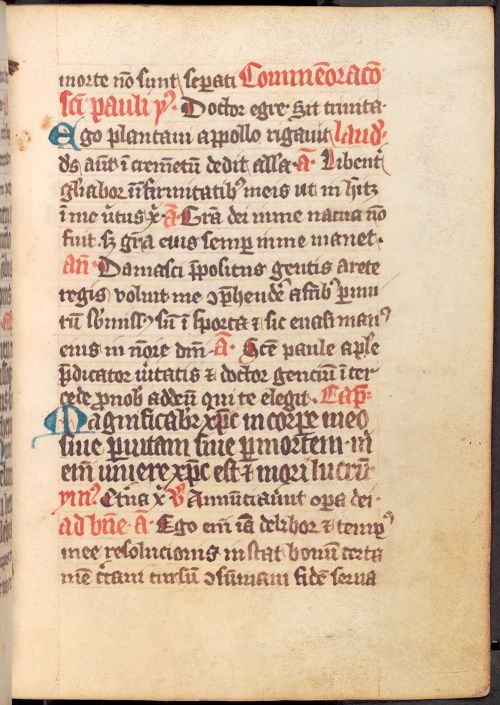 morte nō sunt seperati Commēoracō
sci pauli yꝰ. Doctor egre. Sit trinita
Ego plantaui appollo rigauit laud.
ds aūt ī cremētū dedit alla. A. Libent
gliabor ī īfirmitatibꝰ meis ut īh̄itz
ī me v̄tus x̄. A. Grā dei ī me uacua nō
fuit. sz gr̄a eius semper ī me manet.
an̄. Damasci p̄positus gentis arete
regis voluit me ꝯp̄hendē a fr̄ibꝰ p mu
rū sbmissꝰ sū ī sporta ⁊ sic euasi manꝰ
eius in nōie dnī A. Scē paule apl̄e
p̄dicator v̄itatis ⁊ doctor genciū ī ter
cede pro nob ad deū qui te elegit. Cap̄.
Magnificabr̄ xp̄c in corpe meo
siue p uitam siue p mortem. m
etm̄ uiuere xp̄c est ⁊ mori lucrū
ymꝰ Et̄na x̄ V Annūciauīt opa dei.
ad bn̄e. A. Ego em̄ iā delibor ⁊ tempꝰ
mee resolucionis instat bonū certa
mē c̄taui cursū ꝯsūmaui fidē serua